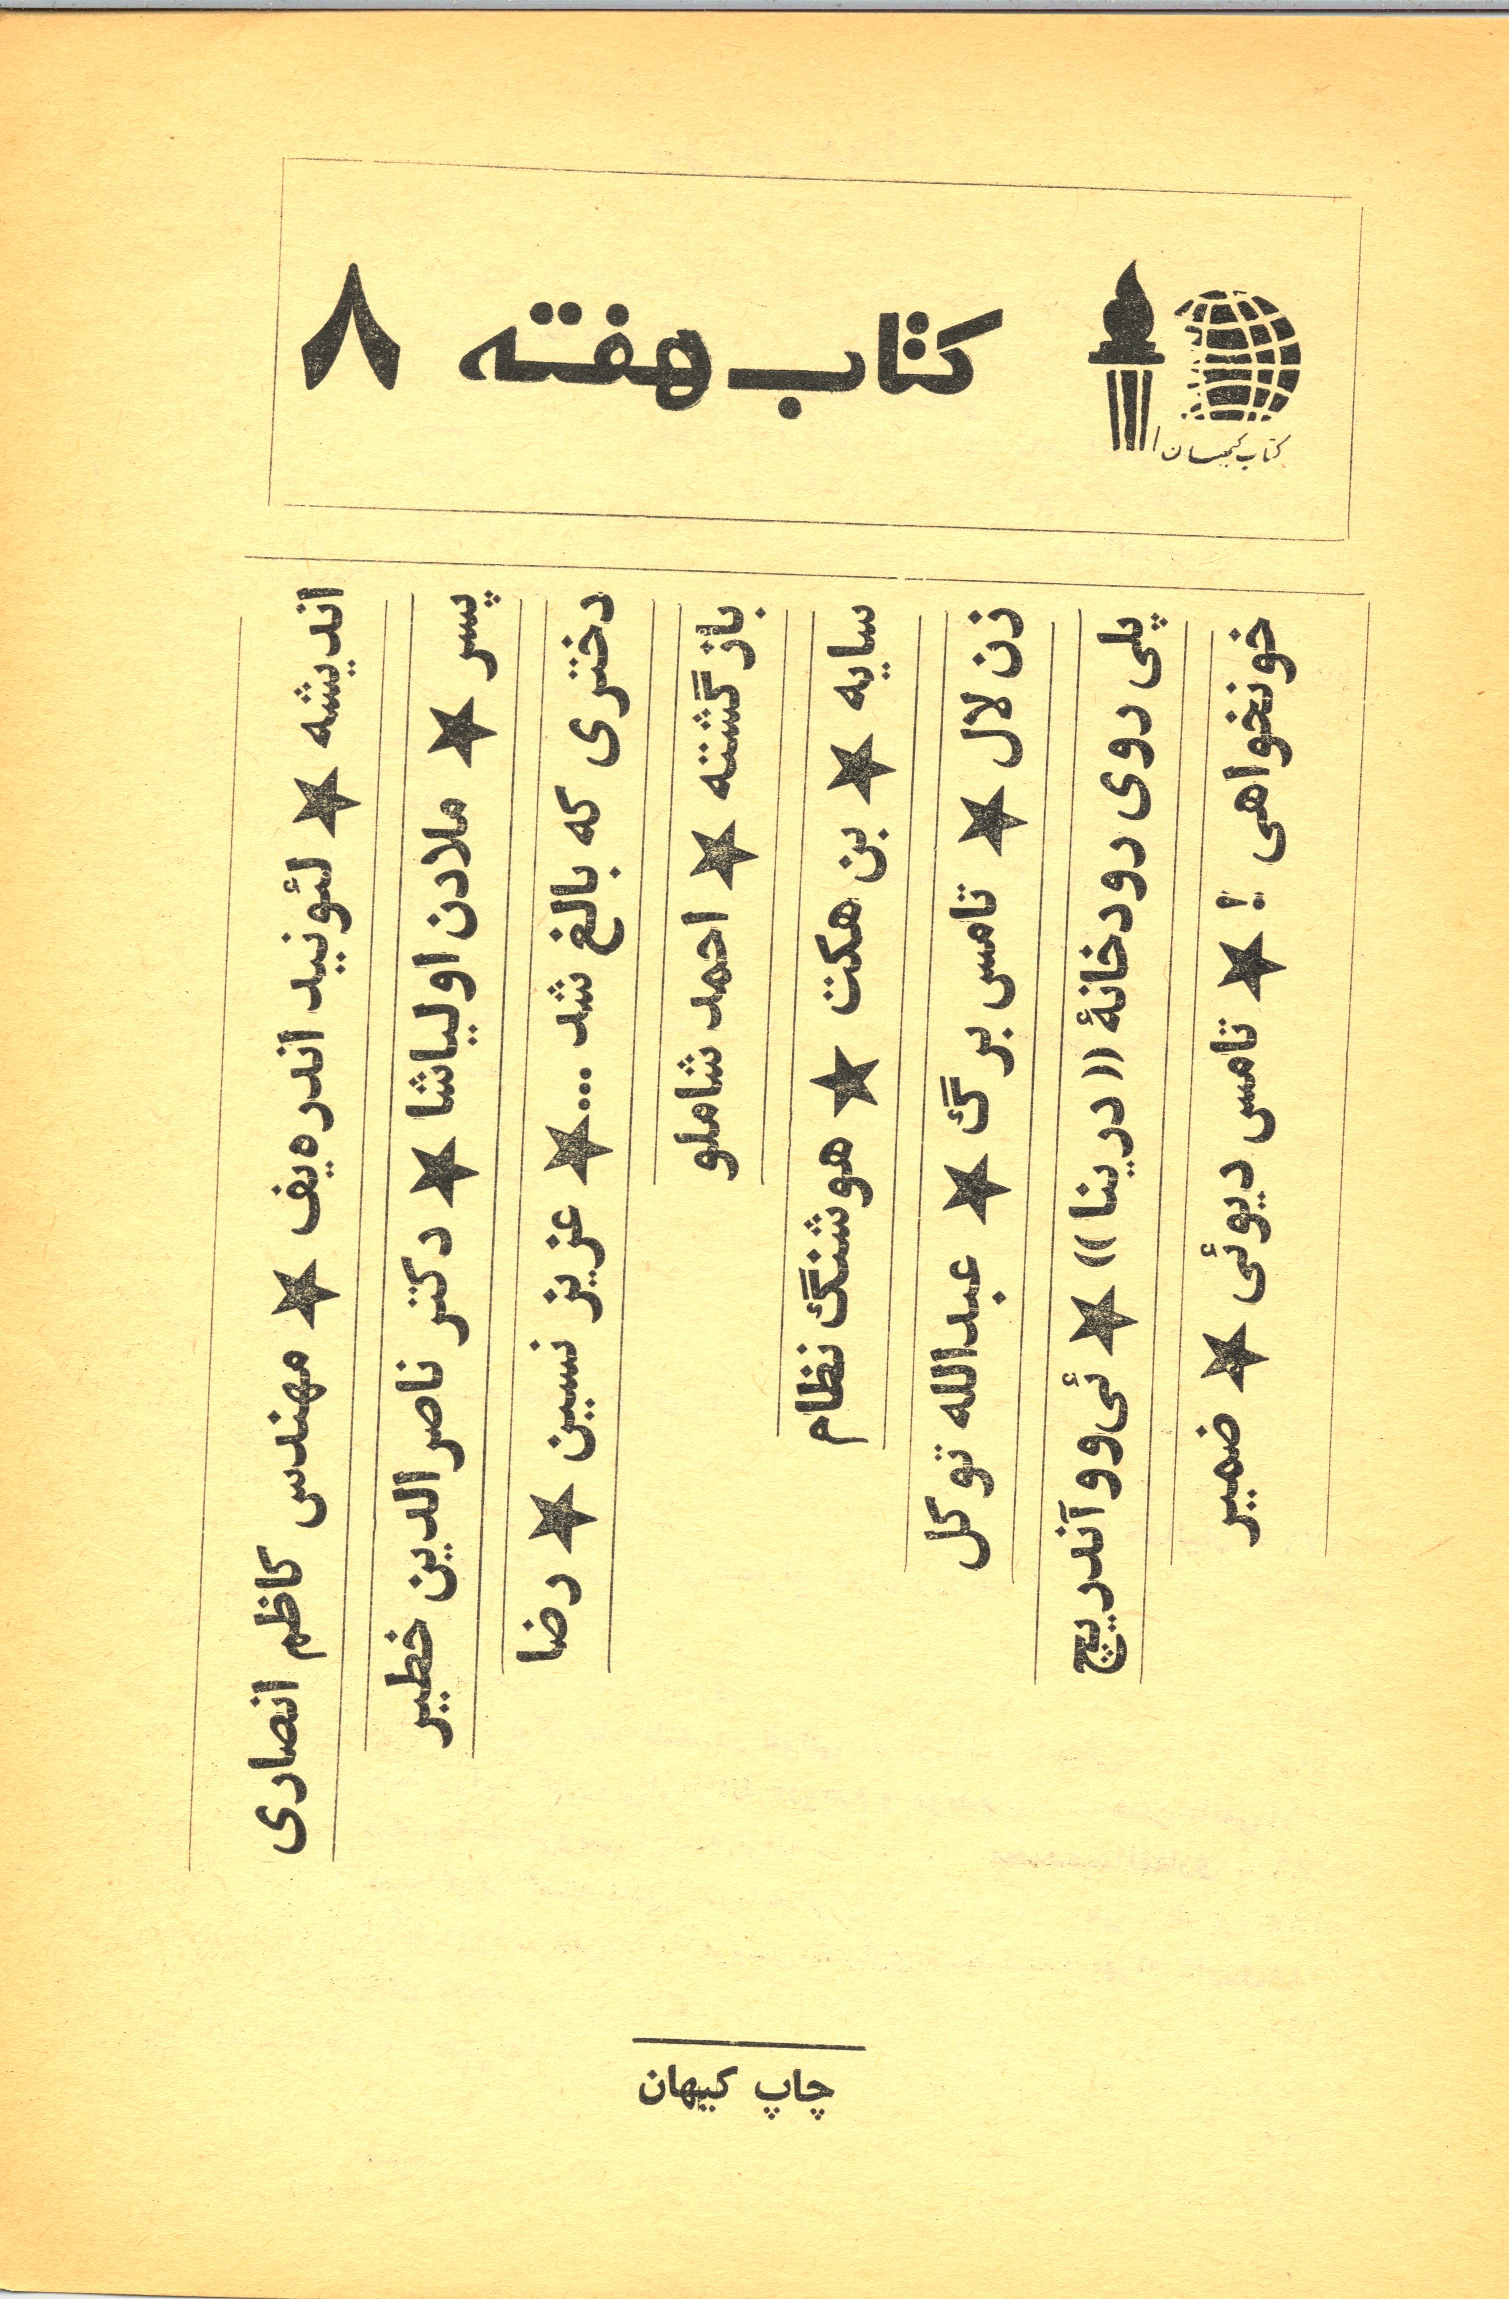 کتاب کیهان
کتاب هفته ۸
اندیشه ★ لئونید آندره‌یف ★ مهندس کاظم انصاری
پسر ★ ملادن اولیاشا ★ دکتر ناصرالدین خطیر
دختری که بالغ شد ... ★ عزیز نسین ★ رضا
بازگشته ★ احمد شاملو
سایه ★ بن هکت ★ هوشنگ نظام
زن لال ★ تامس برگ ★ عبدالله توکل
پلی روی رودخانهٔ «درینا» ★ ئی‌وو آندریچ
خونخواهی ! ★ تامس دیوئی ★ ضمیر
چاپ کیهان